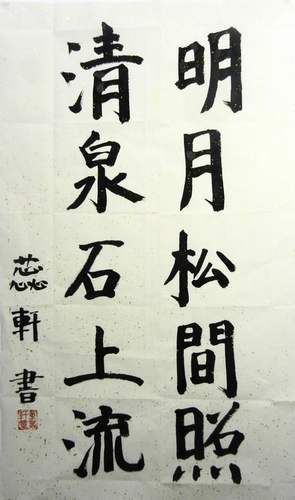 明月松間照
清泉石上流
蕊軒書